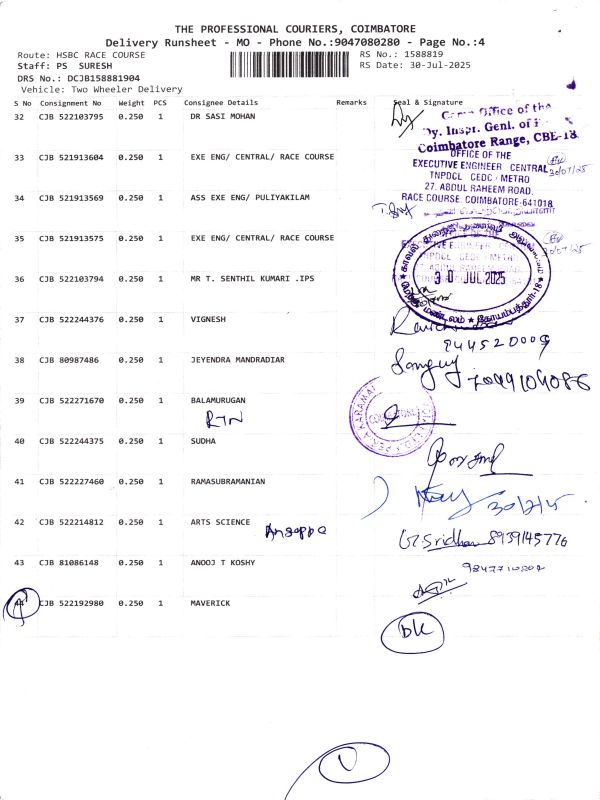 THE PROFESSIONAL COURIERS, COIMBATORE
Delivery Runsheet - MO - Phone No.:9047080280 - Page No.:4
Route: HSBC RACE COURSE RS No.: 1588819
Staff: PS SURESH RS Date: 30-Jul-2025
DRS No.: DCJB158881904
Vehicle: Two Wheeler Delivery
S No Consignment No Weight PCS Consignee Details Remarks Seal & Signature
32 CJB 522103795 0.250 1 DR SASI MOHAN
Office of the
Dy. Inspr. Genl. of
Coimbatore Range, CBE-18
33 CJB 521913604 0.250 1 EXE ENG/ CENTRAL/ RACE COURSE
OFFICE OF THE
EXECUTIVE ENGINEER CENTRAL
TNPDCL CEDC / METRO
30/07/25
27. ABDUL RAHEEM ROAD,
RACE COURSE. COIMBATORE-641018
34 CJB 521913569 0.250 1 ASS EXE ENG/ PULIYAKILAM
35 CJB 521913575 0.250 1 EXE ENG/ CENTRAL/ RACE COURSE
30/07/25
36 CJB 522103794 0.250 1 MR T. SENTHIL KUMARI .IPS
30 JUL 2025
37 CJB 522244376 0.250 1 VIGNESH
944520009
38 CJB 80987486 0.250 1 JEYENDRA MANDRADIAR
39 CJB 522271670 0.250 1 BALAMURUGAN
RTN
40 CJB 522244375 0.250 1 SUDHA
41 CJB 522227460 0.250 1 RAMASUBRAMANIAN
42 CJB 522214812 0.250 1 ARTS SCIENCE
Sridhar 8939145776
43 CJB 81086148 0.250 1 ANOOJ T KOSHY
44 CJB 522192980 0.250 1 MAVERICK
DK